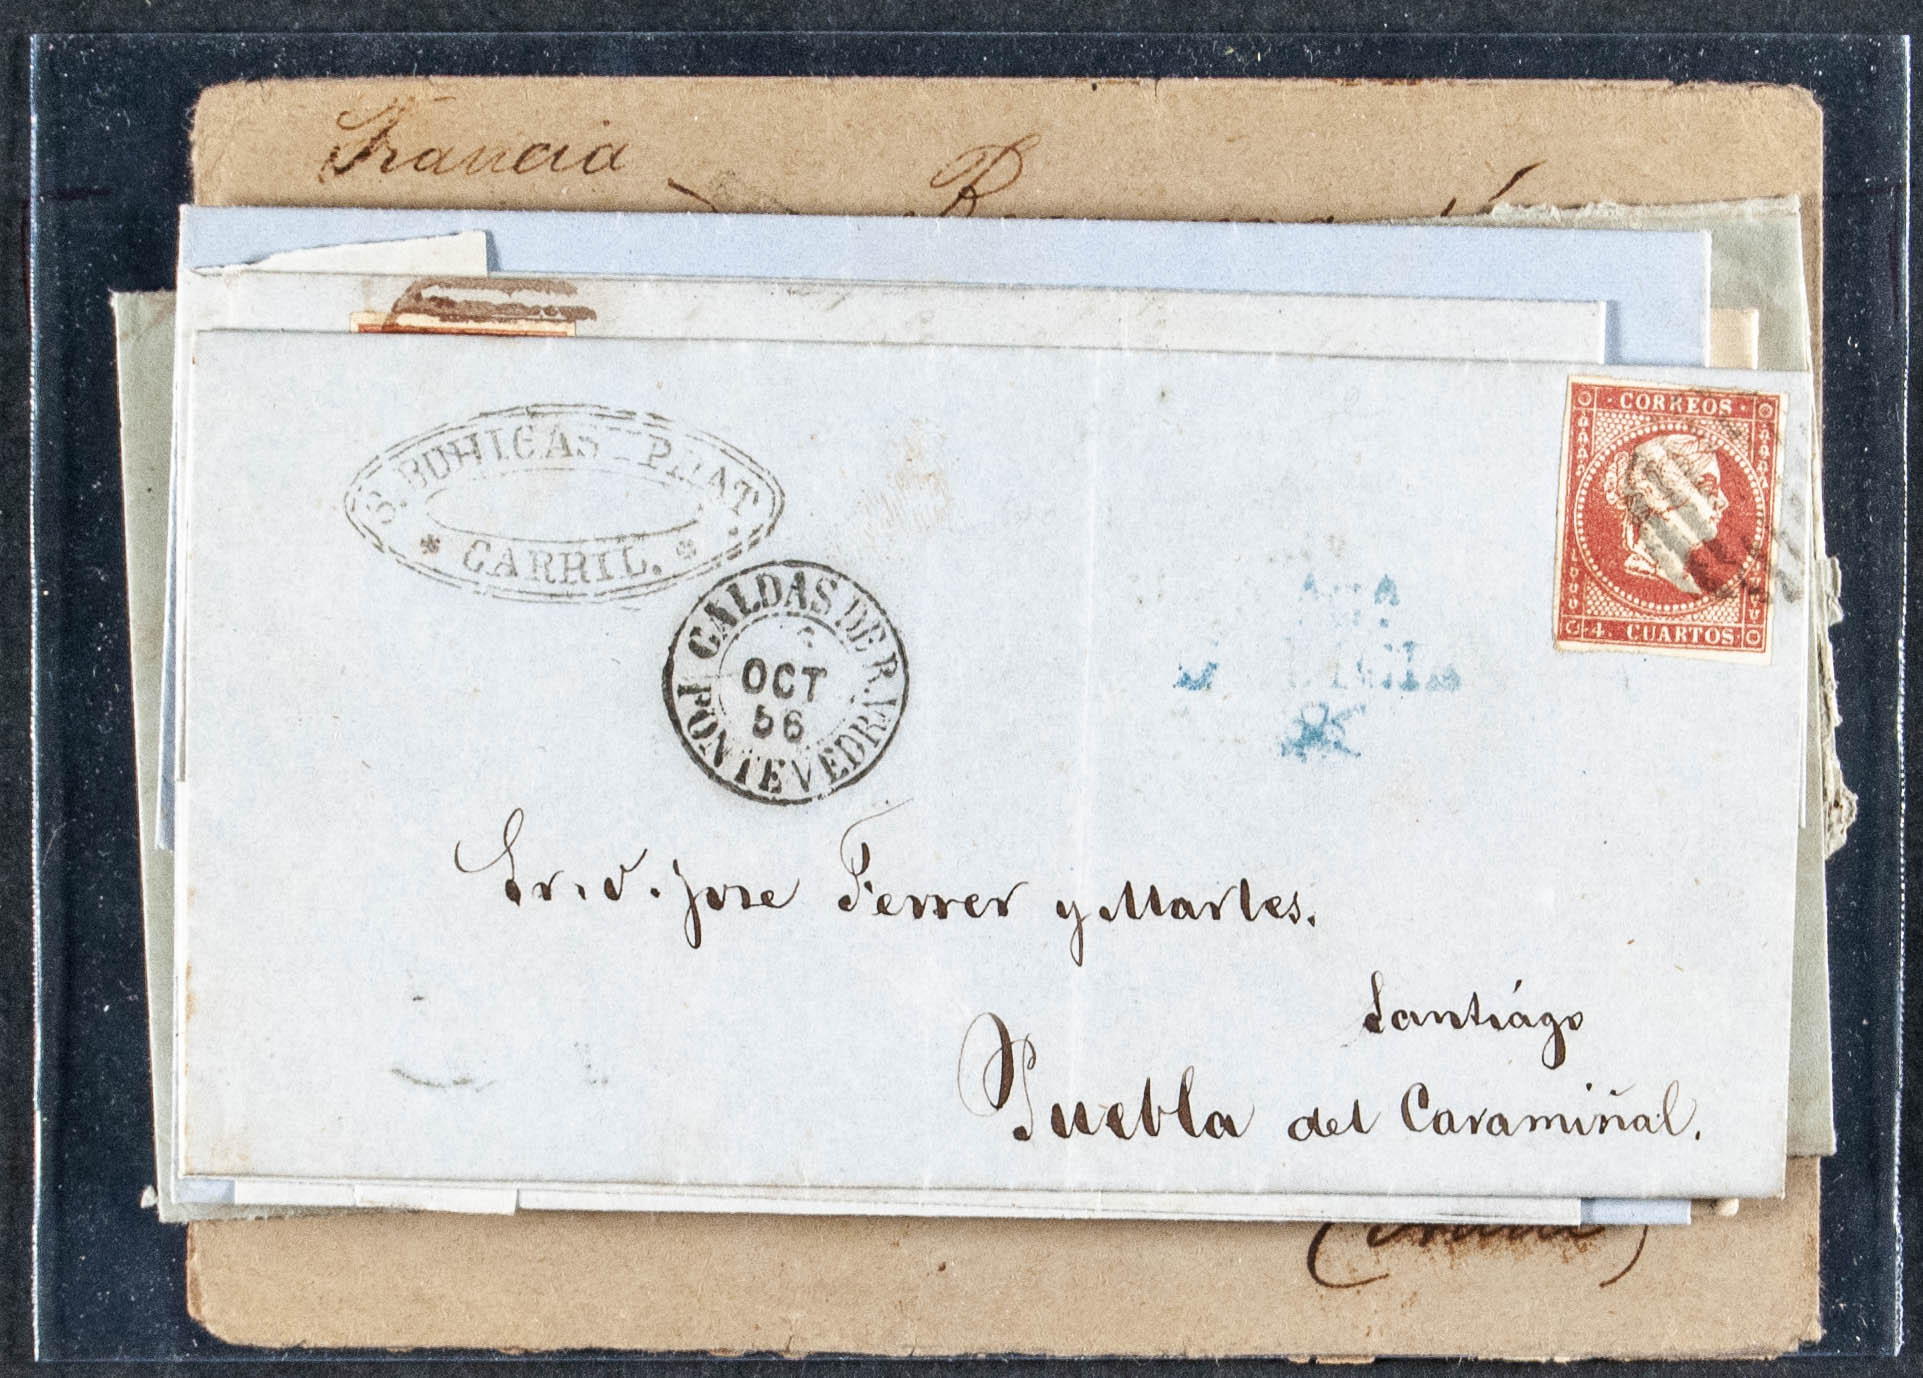 Francia
S. BUHIGAS PRAT
CARRIL.
CORREOS
4. CUARTOS
CALDAS DE R.
OCT
56
PONTEVEDRA
Sr. D. Jose Ferrer y Martes.
Santiágo
Puebla del Caramiñal.